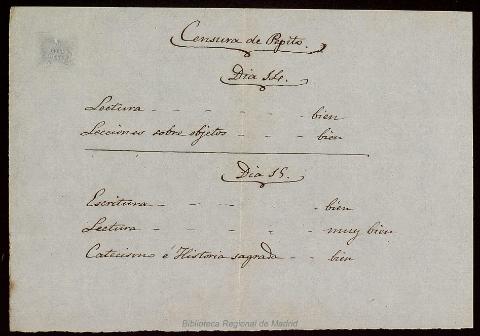 Censura de Pepito.
Dia 14.
Lectura - - - - - - bien
Lecciones sobre objetos - - - bien
Dia 15.
Escritura - - - - - - bien
Lectura - - - - - - muy bien
Catecismo é Historia sagrada - - bien
Biblioteca Regional de Madrid